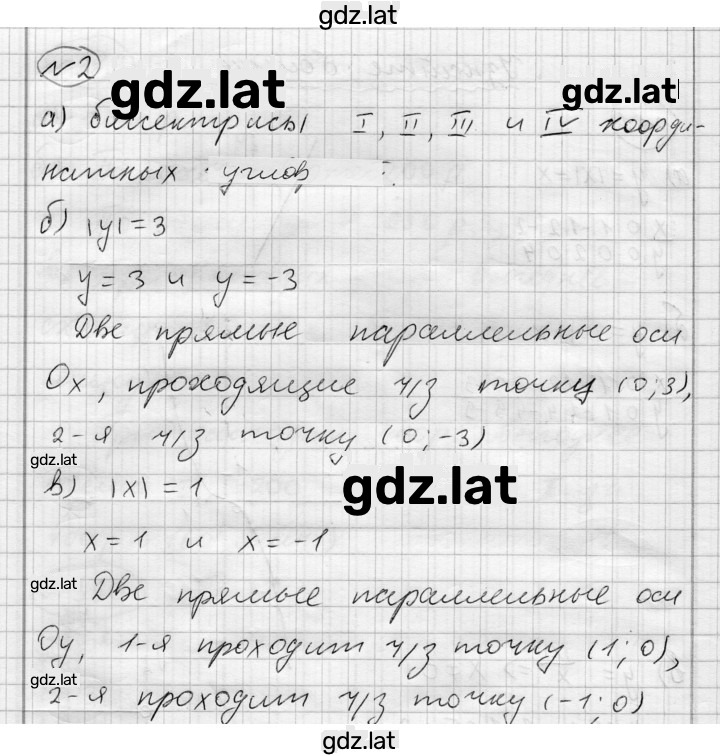 gdz.lat
№2
gdz.lat
gdz.lat
а) биссектрисы I, II, III и IV коорди-
натных углов
б) |y|=3
y=3 и y=-3
Две прямые параллельные оси
Ox, проходящие ч/з точку (0;3),
2-я ч/з точку (0;-3)
gdz.lat
в) |x|=1
gdz.lat
x=1 и x=-1
gdz.lat
Две прямые параллельные оси
Oy, 1-я проходит ч/з точку (1;0),
gdz.lat
2-я проходит ч/з точку (-1;0)
gdz.lat